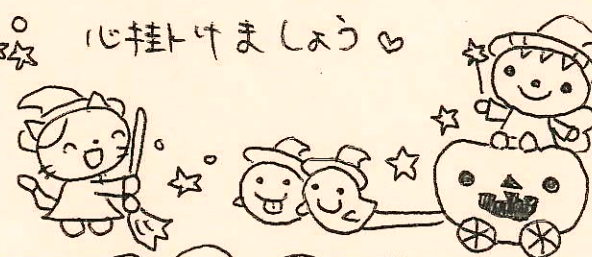 心掛けましょう♡